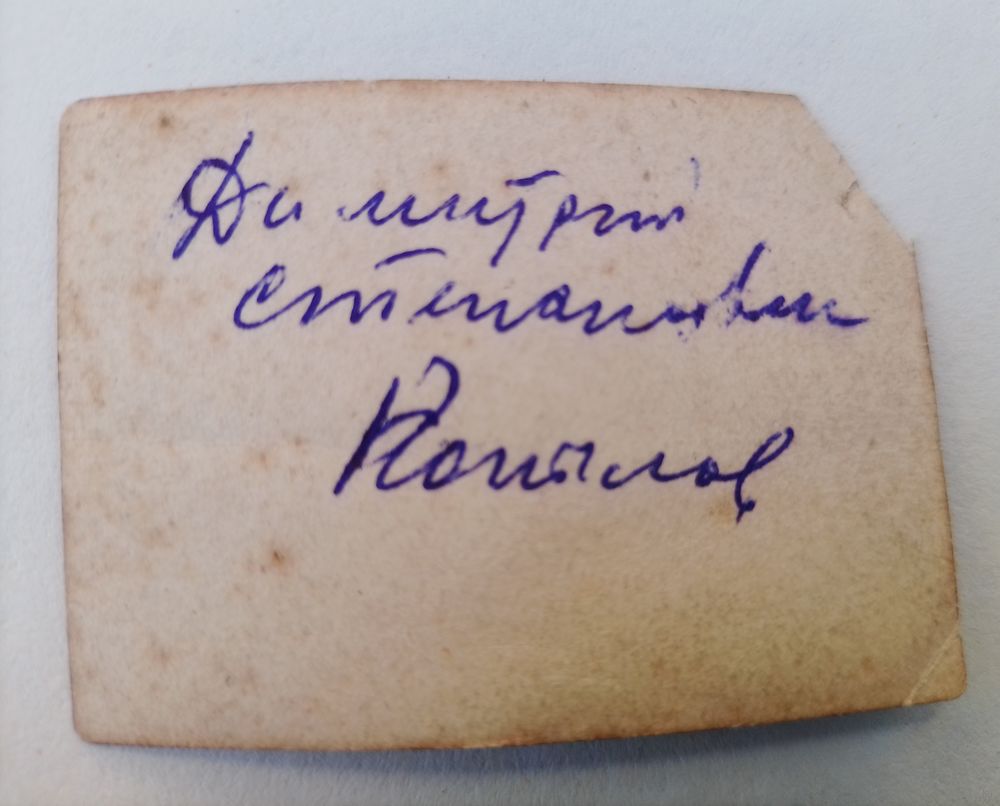 Димитрий
Степанович
Копылов